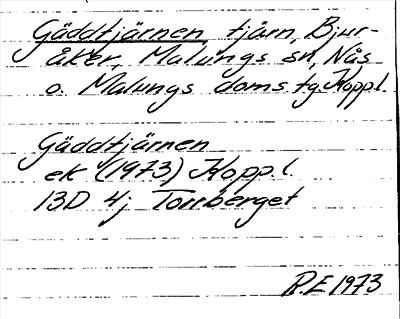 Gäddtjärnen, tjärn, Bjur-
åker, Malungs sn, Nås
o. Malungs doms. tg Koppl.
Gäddtjärnen
ek (1973) Kopp. l.
13D 4j Torrberget
R.E 1973